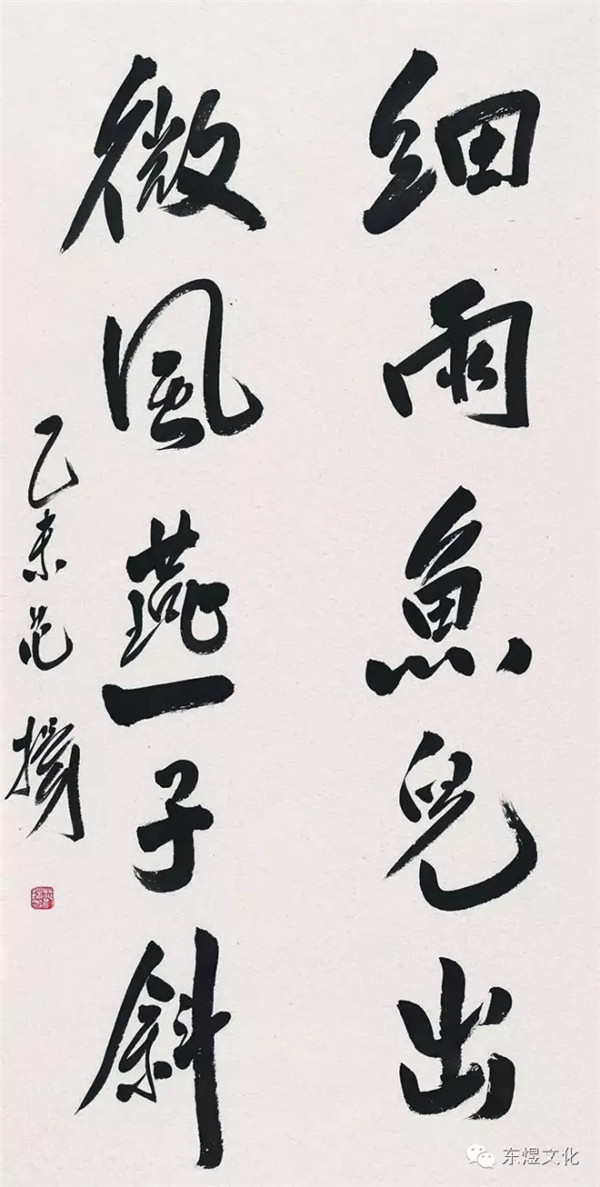 细雨魚兒出
微風燕子斜
乙未范
东煜文化